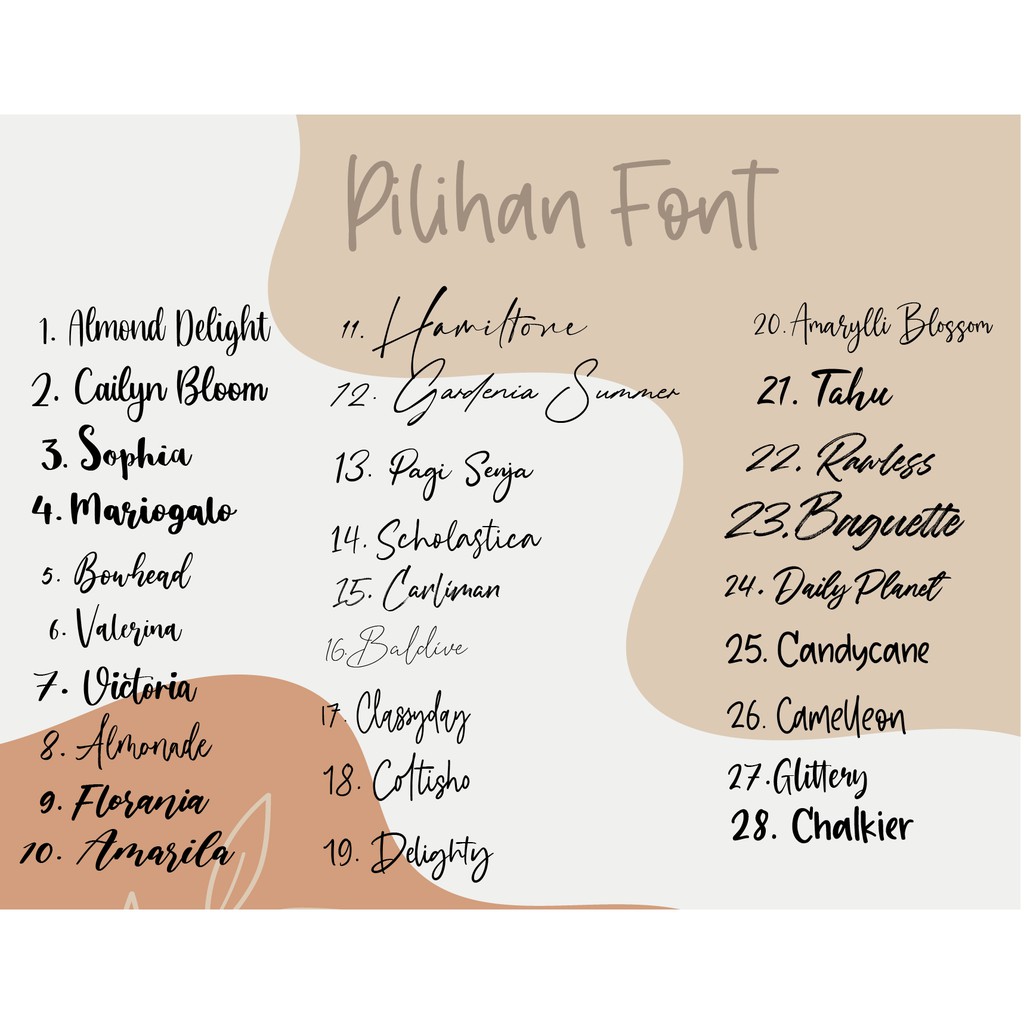 Pilihan Font
1. Almond Delight
2. Cailyn Bloom
3. Sophia
4. Mariogalo
5. Bowhead
6. Valerina
7. Victoria
8. Almonade
9. Florania
10. Amarila
11. Hamiltone
12. Gardenia Summer
13. Pagi Senja
14. Scholastica
15. Carliman
16. Baldive
17. Classyday
18. Coltisho
19. Delighty
20. Amarylli Blossom
21. Tahu
22. Rawless
23. Baguette
24. Daily Planet
25. Candycane
26. Camelleon
27. Glittery
28. Chalkier